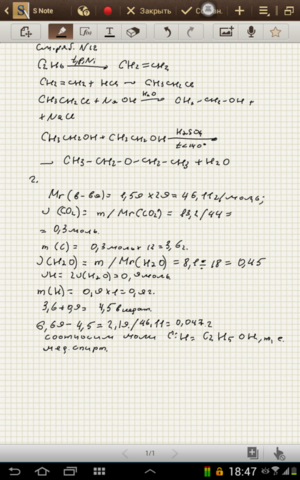 S Note
Закрыть
C2H6 → CH2=CH2
CH2=CH2 + HCl → CH3CH2Cl
CH3CH2Cl + NaOH H2O → CH3-CH2-OH +
+ NaCl
CH3CH2OH + CH3CH2OH H2SO4 t<140°
→ CH3-CH2-O-CH2-CH3 + H2O
2.
Mr(в-ва) = 1,59 × 29 = 46,11 г/моль;
ν(CO2) = m/Mr(CO2) = 13,2/44 =
= 0,3 моль.
m(C) = 0,3 моль × 12 = 3,6 г.
ν(H2O) = m/Mr(H2O) = 8,1 : 18 = 0,45
νH = 2ν(H2O) = 0,9 моль
m(H) = 0,9 × 1 = 0,9 г.
3,6 + 0,9 = 4,5
6,69 - 4,5 = 2,19/46,11 = 0,047 г
соотносим моли C:H = C2H5OH, т.е.
мед. спирт.
1/1
18:47